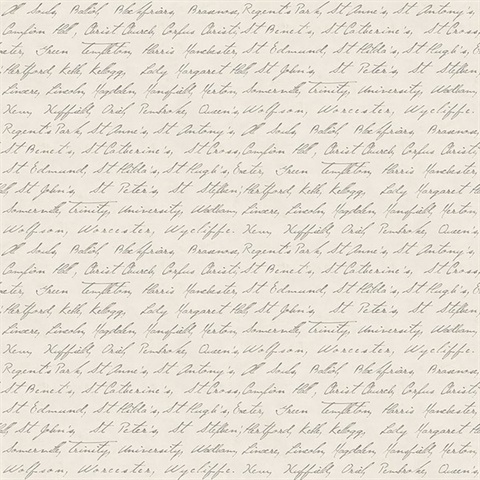 All Souls, Baliol, Blackfriars, Brasnos, Regent's Park, St Anne's, St Antony's,
Campion Hall, Christ Church, Corpus Christi; St Benet's, St Catherine's, St Cross,
Exeter, Green Templeton, Harris Manchester, St Edmund, St Hilda's, St Hugh's, Ex
Hertford, Keble, Kellogg, Lady Margaret Hall, St John's, St Peter's, St Stephen;
Linacre, Lincoln, Magdalen, Mansfield, Merton, Somerville, Trinity, University, Wadham,
Oriel, Pembroke, Queen's, Wolfson, Worcester, Wycliffe.
Regent's Park, St Anne's, St Antony's, All Souls, Baliol, Blackfriars, Brasnos,
St Benet's, St Catherine's, St Cross, Campion Hall, Christ Church, Corpus Christi;
St Edmund, St Hilda's, St Hugh's, Exeter, Green Templeton, Harris Manchester,
St John's, St Peter's, St Stephen; Hertford, Keble, Kellogg, Lady Margaret H
Somerville, Trinity, University, Wadham, Linacre, Lincoln, Magdalen, Mansfield, Merton
Wolfson, Worcester, Wycliffe. Oriel, Pembroke, Queen's
All Souls, Baliol, Blackfriars, Brasnos, Regent's Park, St Anne's, St Antony's,
Campion Hall, Christ Church, Corpus Christi; St Benet's, St Catherine's, St Cross
Exeter, Green Templeton, Harris Manchester, St Edmund, St Hilda's, St Hugh's, Ex
Hertford, Keble, Kellogg, Lady Margaret Hall, St John's, St Peter's, St Stephen;
Linacre, Lincoln, Magdalen, Mansfield, Merton, Somerville, Trinity, University, Wadham,
Oriel, Pembroke, Queen's, Wolfson, Worcester, Wycliffe.
Regent's Park, St Anne's, St Antony's, All Souls, Baliol, Blackfriars, Brasnos,
St Benet's, St Catherine's, St Cross, Campion Hall, Christ Church, Corpus Christi;
St Edmund, St Hilda's, St Hugh's, Exeter, Green Templeton, Harris Manchester,
St John's, St Peter's, St Stephen; Hertford, Keble, Kellogg, Lady Margaret H
Somerville, Trinity, University, Wadham, Linacre, Lincoln, Magdalen, Mansfield, Merton
Wolfson, Worcester, Wycliffe. Oriel, Pembroke, Queen's